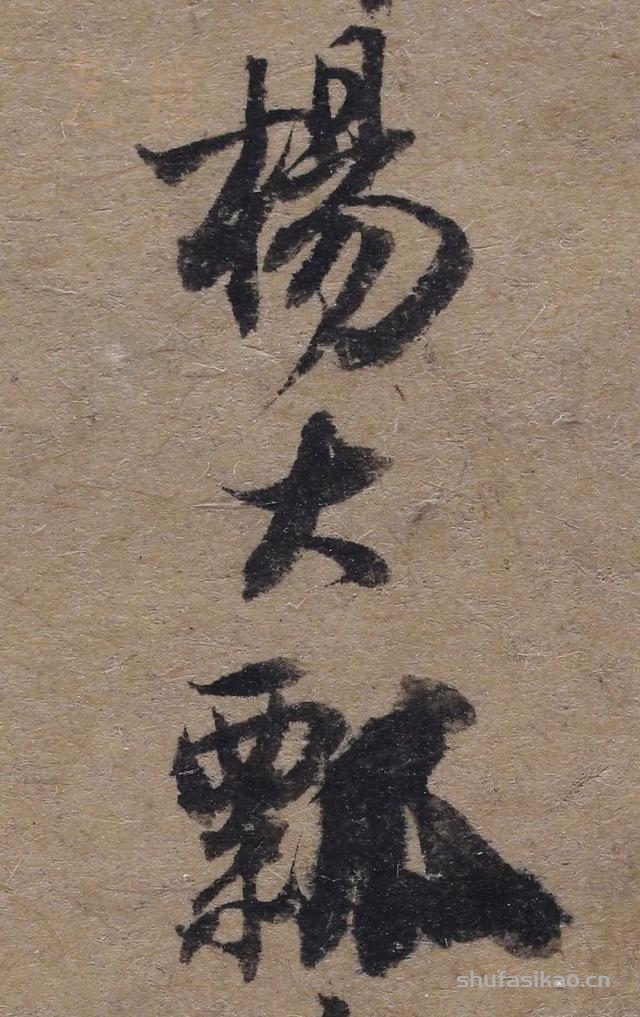 楊大瓢
shufasikao.cn